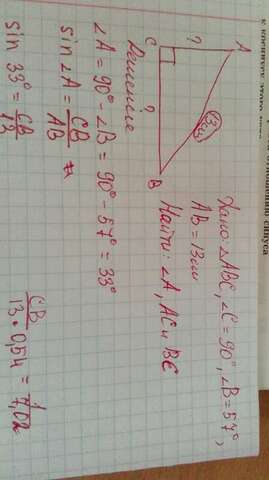 Дано: △ABC, ∠C = 90°, ∠B = 57°,
AB = 13см
Найти: ∠A, AC и BC
A
?
C
13см
?
B
Решение
∠A = 90° - ∠B = 90° - 57° = 33°
sin∠A = CB/AB
sin 33° = CB/13
CB
13 · 0,54 = 7,02